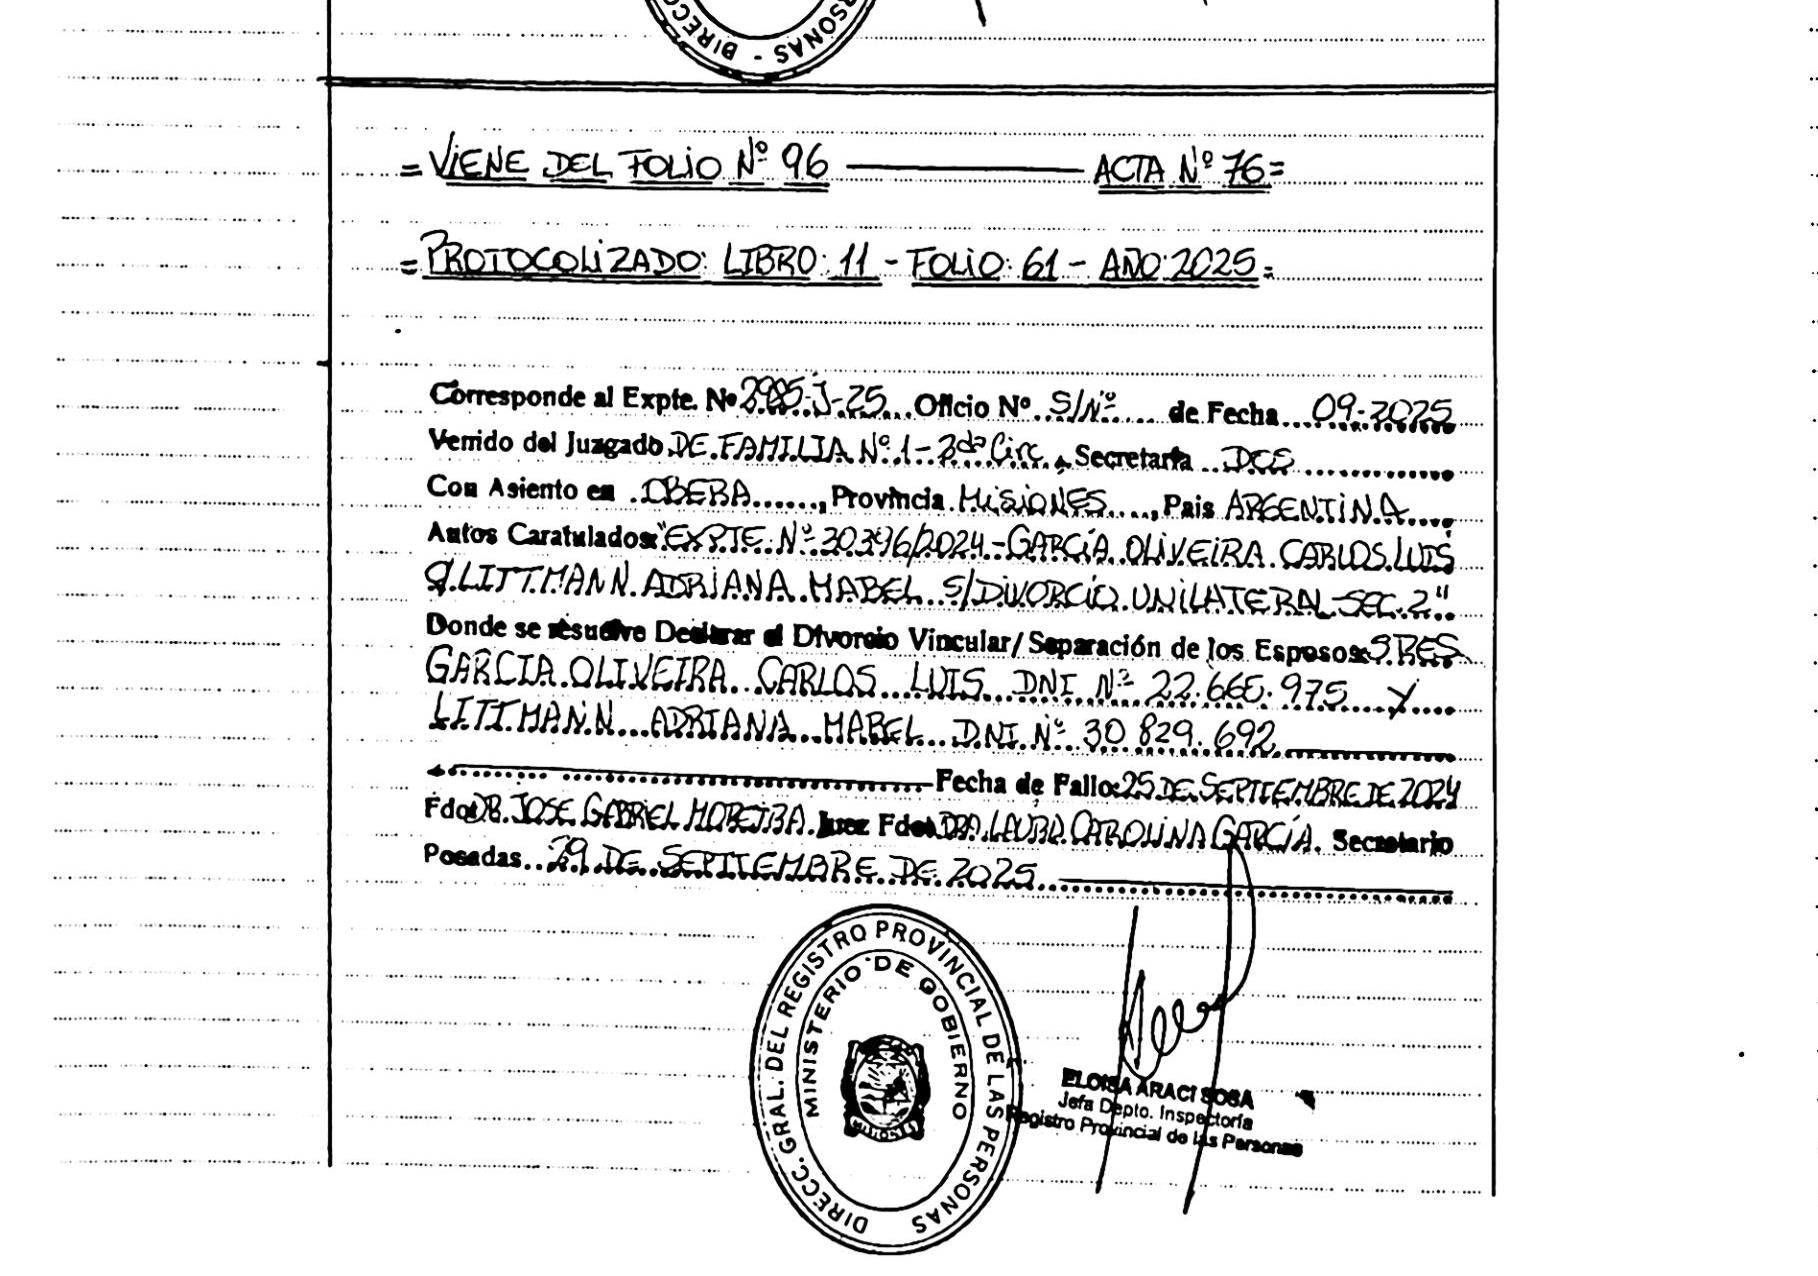 DIRECC
SONAS -
= ViENE DEL FOLiO Nº 96 ——— ACTA Nº 76 =
= PROTOCOLiZADO: LIBRO: 11 - FOLiO: 61 - AÑO: 2025 =
Corresponde al Expte. Nº 2985-J-25 Oficio Nº S/Nº de Fecha 09-2025
Venido del Juzgado DE FAMILIA Nº 1 - 3da Circ., Secretaría DOS
Con Asiento en OBERA, Provincia MiSiONES, Pais ARGENTiNA
Autos Caratulados: "EXPTE Nº 30396/2024 - GARCÍA OLiVEiRA CARLOS LUiS
C/ LITTMANN ADRiANA MABEL S/DiVORCiO UNiLATERAL SEC. 2"
Donde se resuelve Declarar el Divorcio Vincular/Separación de los Esposos: SRES
GARCIA OLIVEIRA CARLOS LUIS DNI Nº 22.665.975 Y
LITTMANN ADRIANA MABEL DNI Nº 30.829.692
Fecha de Fallo: 25 DE SEPTIEMBRE DE 2024
Fdo: DR. JOSE GABRiEL MOREIRA Juez Fdo: DRA. LAURA CAROLiNA GARCÍA. Secretario
Posadas 29 DE SEPTIEMBRE DE 2025
DIRECC. GRAL. DEL REGISTRO PROVINCIAL DE LAS PERSONAS
MINISTERIO DE GOBIERNO
MISIONES
ELOISA ARACI SOSA
Jefa Depto. Inspectoría
Registro Provincial de las Personas